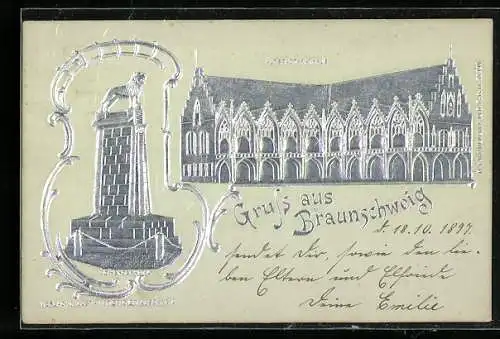 Gruss aus
Braunschweig
d. 18.10.1897.
sendet Dir, sowie den lie-
ben Eltern und Elfriede
Deine Emilie